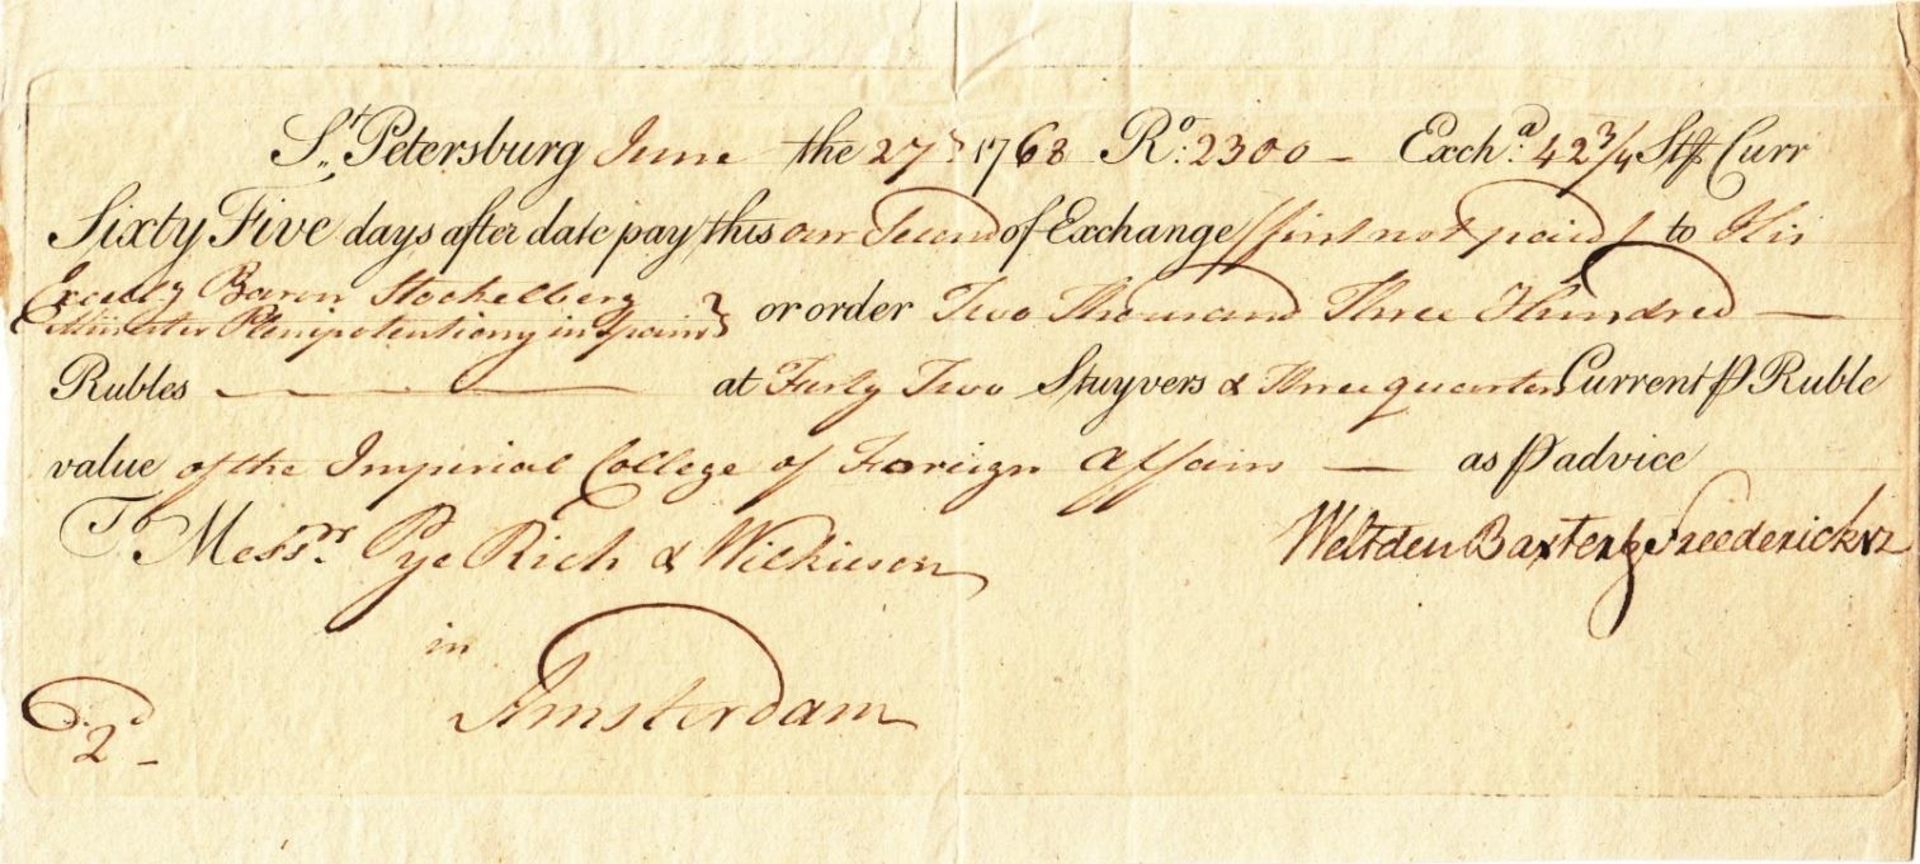 St. Petersburg June the 27th 1768 Ro: 2300 – Excha: 42 3/4 Stfs Curr
Sixty Five days after date pay this our Second of Exchange (first not paid) to His
Excelly Baron Stackelberg
Minister Plenipotentiary in Spain } or order Two Thousand Three Hundred —
Rubles — at Forty Two Stuyvers & Three quarters Current ⅌ Ruble
value of the Imperial College of Foreign Affairs — as ⅌ advice
To Messrs. Pye Rich & Wilkieson
Weltden Baxter & Freedericksz
in
Amsterdam
2d –